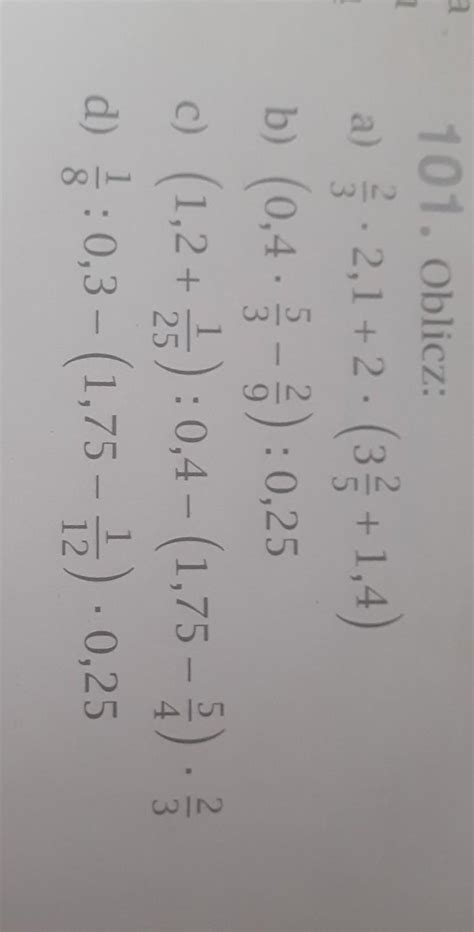 101. Oblicz:
a) 2/3 · 2,1 + 2 · (3 2/5 + 1,4)
b) (0,4 · 5/3 − 2/9) : 0,25
c) (1,2 + 1/25) : 0,4 − (1,75 − 5/4) · 2/3
d) 1/8 : 0,3 − (1,75 − 1/12) · 0,25